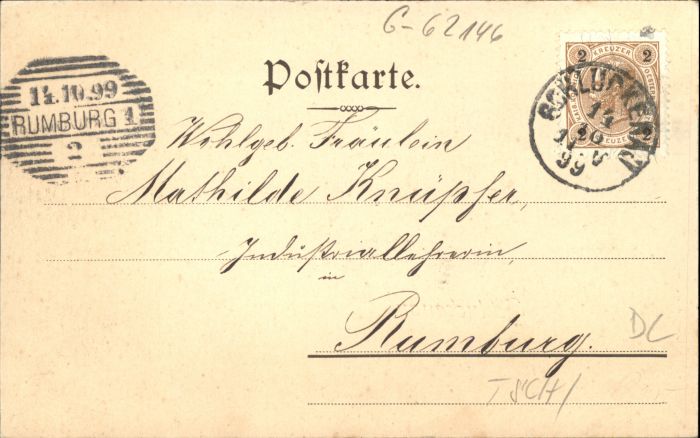 G-62146
Postkarte.
14.10.99
RUMBURG 1
2
2 KREUZER 2
2 2
SCHLUCKENAU
14
10
99
Wohlgeb. Fräulein
Mathilde Knüpfer,
Industriallehrerin,
in
Rumburg.
DL
TSCH/